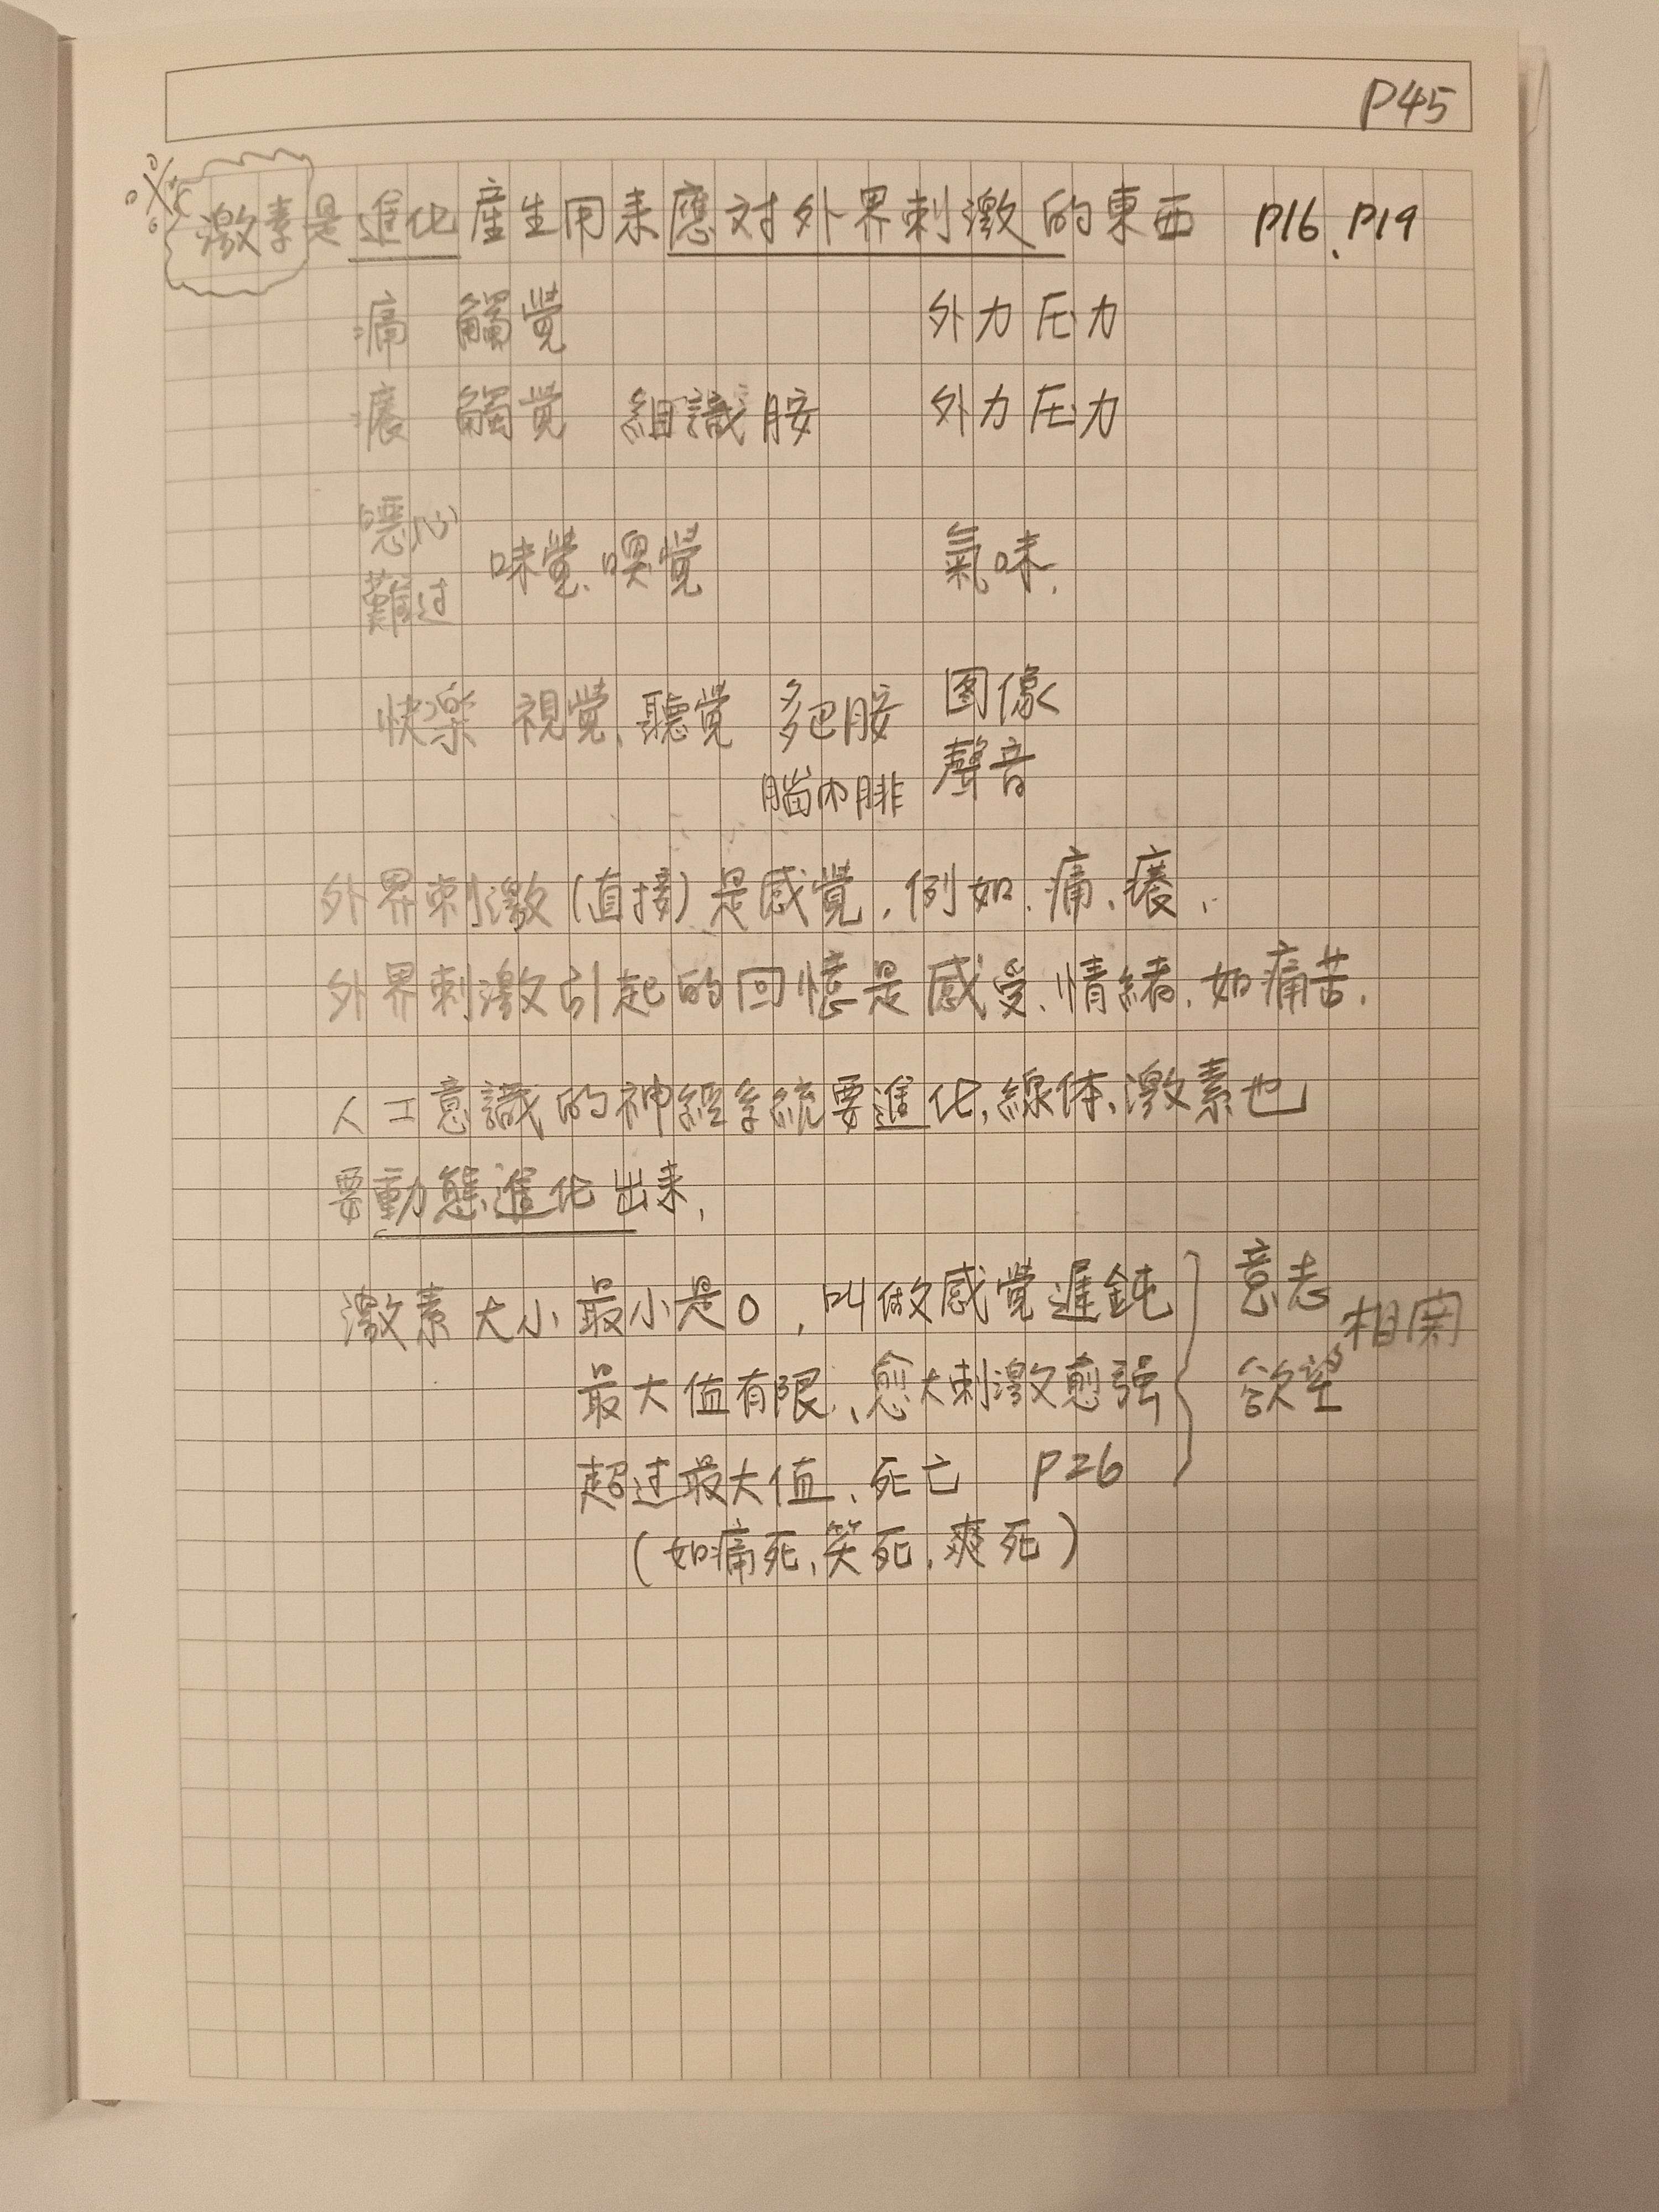 P45
激素是進化産生用来應对外界刺激的東西 P16、P19
痛 觸覚 外力压力
癢 觸覚 組識胺 外力压力
噁心
難过 味覚、嗅覚 氣味.
快楽 視覚、聽覚 多巴胺 图像
腦内腓 聲音
外界刺激(直接)是感覚,例如、痛、癢、
外界刺激引起的回憶是感受、情緒、如痛苦.
人工意識的神經系統要進化,線体、激素也
要動態進化出来,
激素大小最小是0,叫做感覚遲鈍 意志
最大值有限、愈大刺激愈强 欲望 相関
超过最大值、死亡 P26
(如痛死、笑死、爽死)